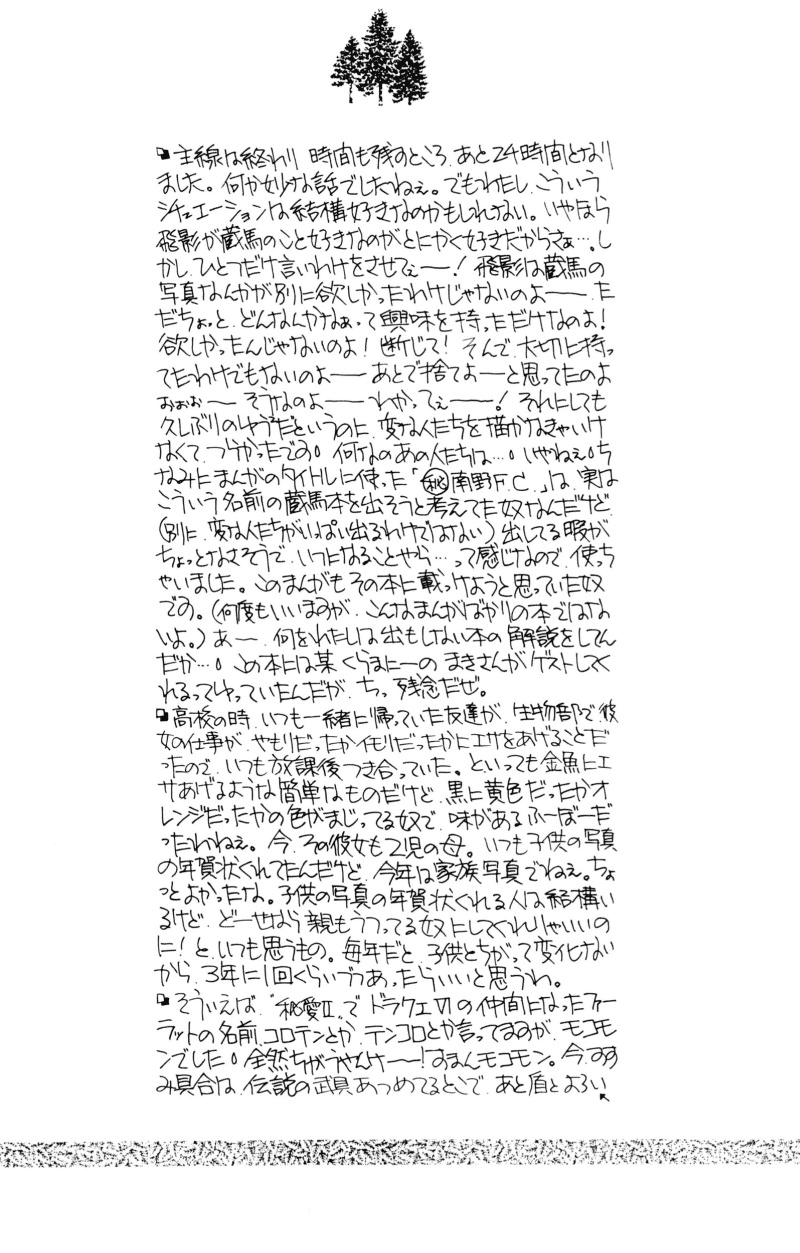 主線は終わり 時間も残すところ、あと24時間となり
ました。何か妙な話でしたねぇ。でもわたし、こういう
シチュエーションは結構好きなのかもしれない。いやなら
飛影が蔵馬のこと好きなのがとにかく好きだからさぁ…。し
かし、ひとつだけ言いわけをさせてぇ――!飛影は蔵馬の
写真なんかが別に欲しかったわけじゃないのよ――た
だちょっと、どんなんかなぁって興味を持っただけなのよ!
欲しかったんじゃないのよ!断じて!そんで、大切に持っ
てたわけでもないのよ――あとで捨てよ―と思ってたのよ
おぉぉぉ― そうなのよ――わかってぇ――!それにしても
久しぶりのゆうはくだというのに、変な人たちを描かなきゃいけ
なくて、つらかったです。何なのあの人たちは…。いやねぇ。ち
なみにまんがのタイトルに使った「㊙南野F.C.」は、実は
こういう名前の蔵馬本を出そうと考えてた奴なんだけど、
(別に、変な人たちがいっぱい出るわけではない)出してる暇が
ちょっとなさそうで、いつになることやら…って感じなので、使っち
ゃいました。このまんがもその本に載っけようと思っていた奴
です。(何度もいいますが、こんなまんがばかりの本ではな
いよ。)あ―、何をわたしは出もしない本の解説をしてん
だか…。この本には某くらまにーのまきさんがゲストしてく
れるってゆっていたんだが、ちっ、残念だぜ。
高校の時、いつも一緒に帰っていた友達が、生物部で、彼
女の仕事が、やもりだったかイモリだったかにエサをあげることだ
ったので、いつも放課後つき合っていた。といっても金魚にエ
サあげるような簡単なものだけど、黒に黄色だったかオ
レンジだったかの色がまじってる奴で、味があるふーぼーだ
ったわねぇ。今、その彼女も2児の母。いつも子供の写真
の年賀状くれてたんだけど、今年は家族写真でねぇ。ちょ
っとよかったな。子供の写真の年賀状くれる人は結構い
るけど、どーせなら親もうつってる奴にしてくれりゃいいの
に!と、いつも思うもの。毎年だと、子供とちがって変化ない
から、3年に1回くらいづつあったらいいと思うわ。
そういえば、"秘愛II"で ドラクエVIの仲間になったファー
ラットの名前、コロテンとか、テンコロとか言ってますが、モコモ
ンでした。全然ちがうやんけ――!すまんモコモン。今、すす
み具合は、伝説の武具あつめてるとこで、あと盾とよろい